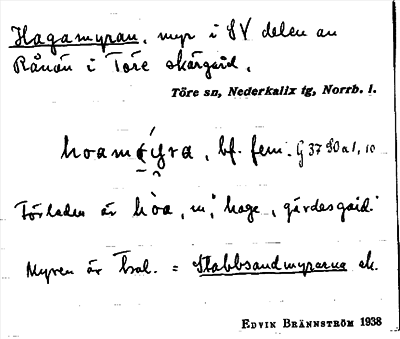 Hagamyran, myr i SV delen av
Rånön i Töre skärgård.
Töre sn, Nederkalix tg, Norrb. l.
bf. fem. G 37
Förleden är hòa, m., hage, gärdesgård.
Myren är = Stabbsandmyrarna ek.
EDVIN BRÄNNSTRÖM 1938